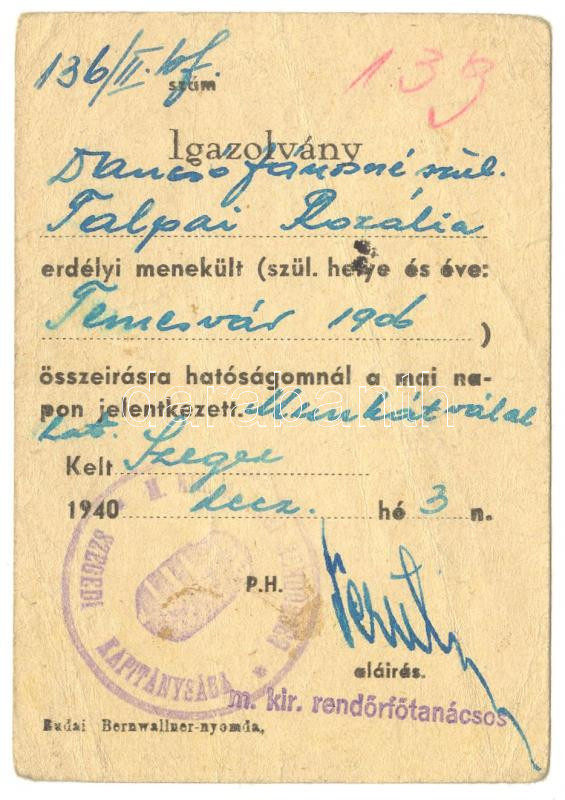 136/II. bf. 139
szám
Igazolvány
Dancsó Jánosné szül.
Talpai Rozália
erdélyi menekült (szül. helye és éve:
Temesvár 1906 )
összeirásra hatóságomnál a mai na-
pon jelentkezett. Munkát válal
hat.
Kelt Szeged
1940 decz. hó 3 n.
P.H.
SZEGEDI KAPITÁNYSÁGA
aláirás.
m. kir. rendőrfőtanácsos
Budai Bernwallner-nyomda,
darabanth